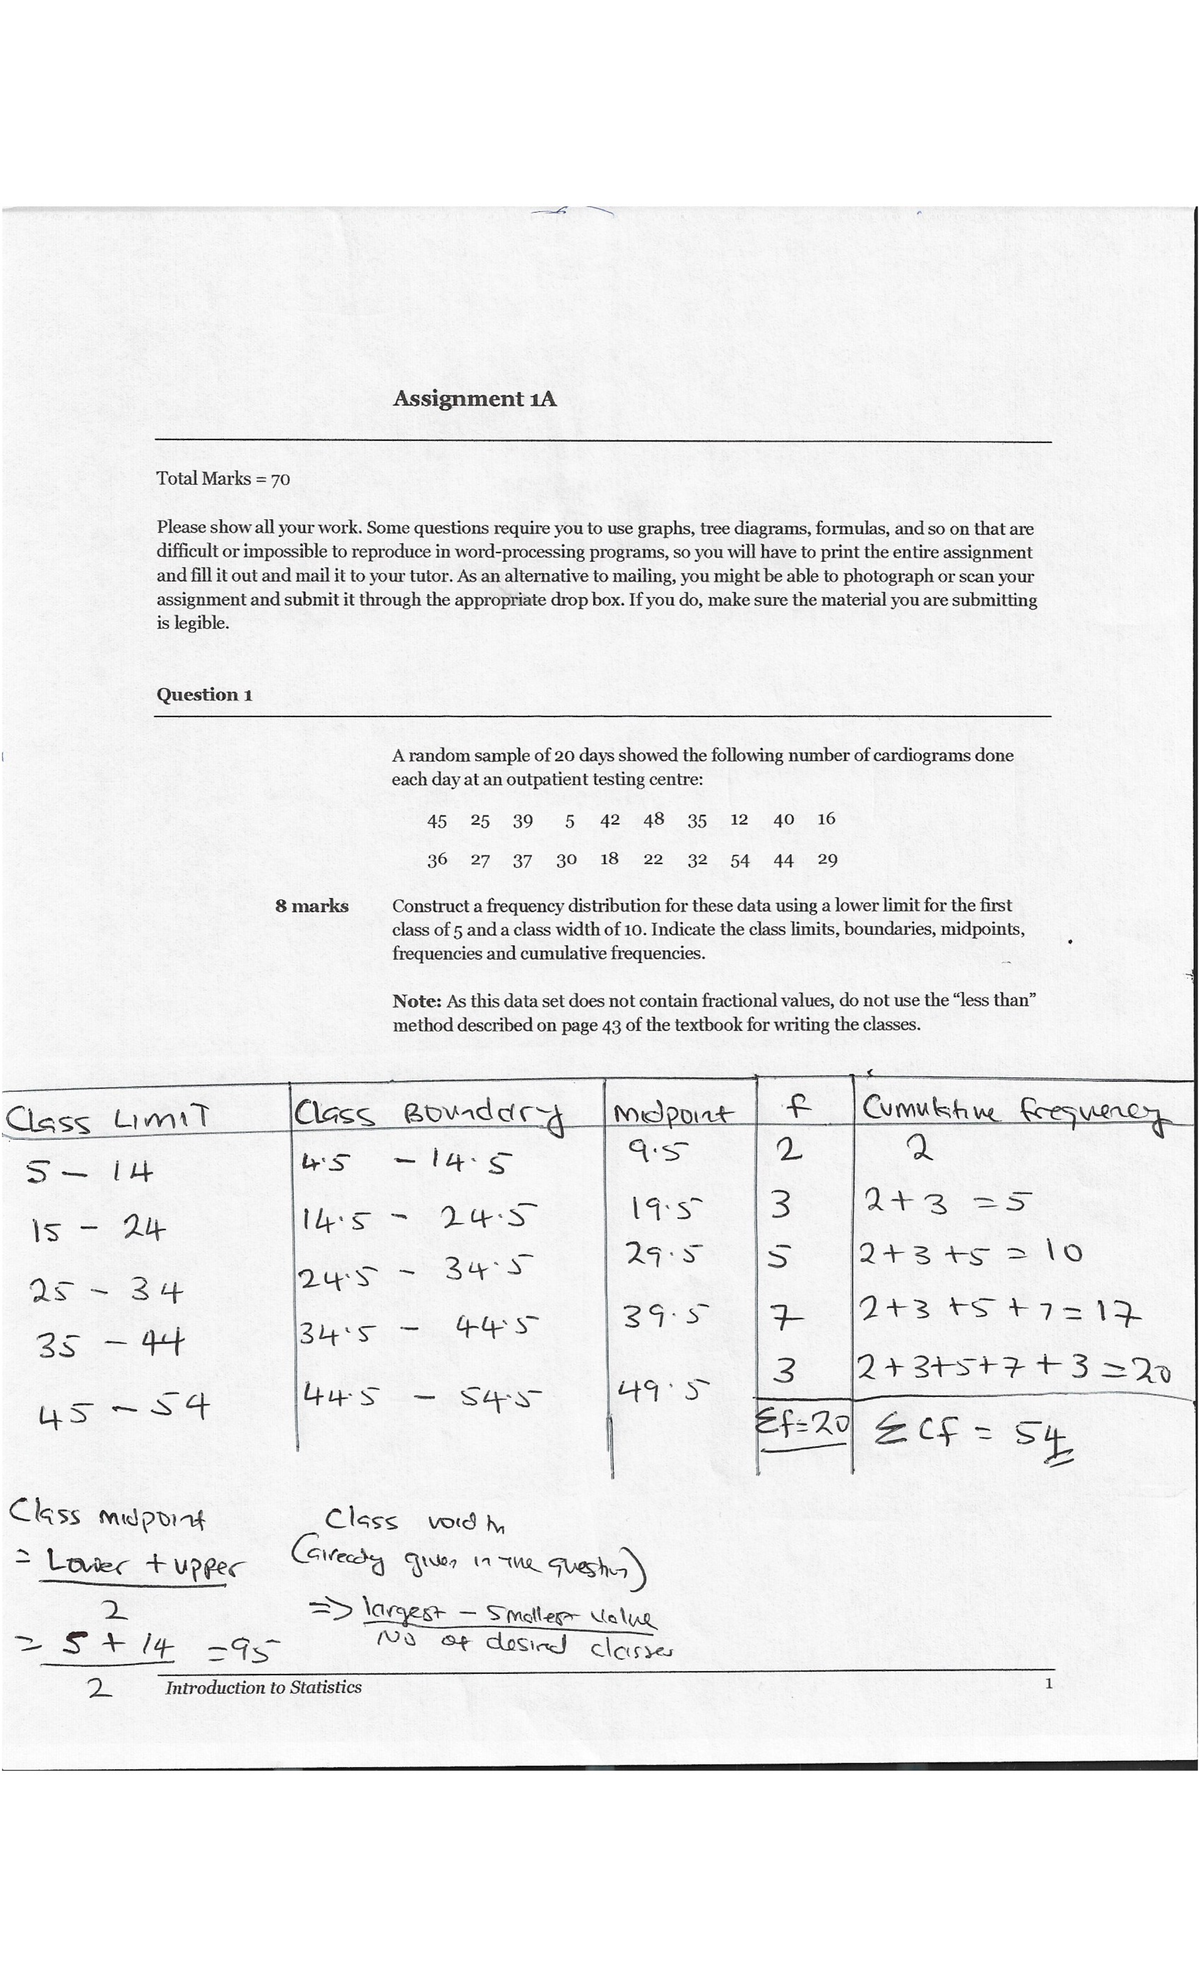 Assignment 1A
Total Marks = 70
Please show all your work. Some questions require you to use graphs, tree diagrams, formulas, and so on that are
difficult or impossible to reproduce in word-processing programs, so you will have to print the entire assignment
and fill it out and mail it to your tutor. As an alternative to mailing, you might be able to photograph or scan your
assignment and submit it through the appropriate drop box. If you do, make sure the material you are submitting
is legible.
Question 1
A random sample of 20 days showed the following number of cardiograms done
each day at an outpatient testing centre:
45 25 39 5 42 48 35 12 40 16
36 27 37 30 18 22 32 54 44 29
8 marks Construct a frequency distribution for these data using a lower limit for the first
class of 5 and a class width of 10. Indicate the class limits, boundaries, midpoints,
frequencies and cumulative frequencies.
Note: As this data set does not contain fractional values, do not use the “less than”
method described on page 43 of the textbook for writing the classes.
Class LIMIT Class Bounddry Midpoint f Cumulative frequency
5 – 14 4.5 – 14.5 9.5 2 2
15 – 24 14.5 – 24.5 19.5 3 2+3 = 5
25 – 34 24.5 – 34.5 29.5 5 2+3+5 = 10
35 – 44 34.5 – 44.5 39.5 7 2+3+5+7=17
45 – 54 44.5 – 54.5 49.5 3 2+3+5+7+3=20
Σf=20 Σ Cf = 54
Class midpoint
= Lower + upper
2
= 5 + 14 = 95
2
Class
(already given in the question)
=> largest – smallest value
No of desired classes
Introduction to Statistics 1